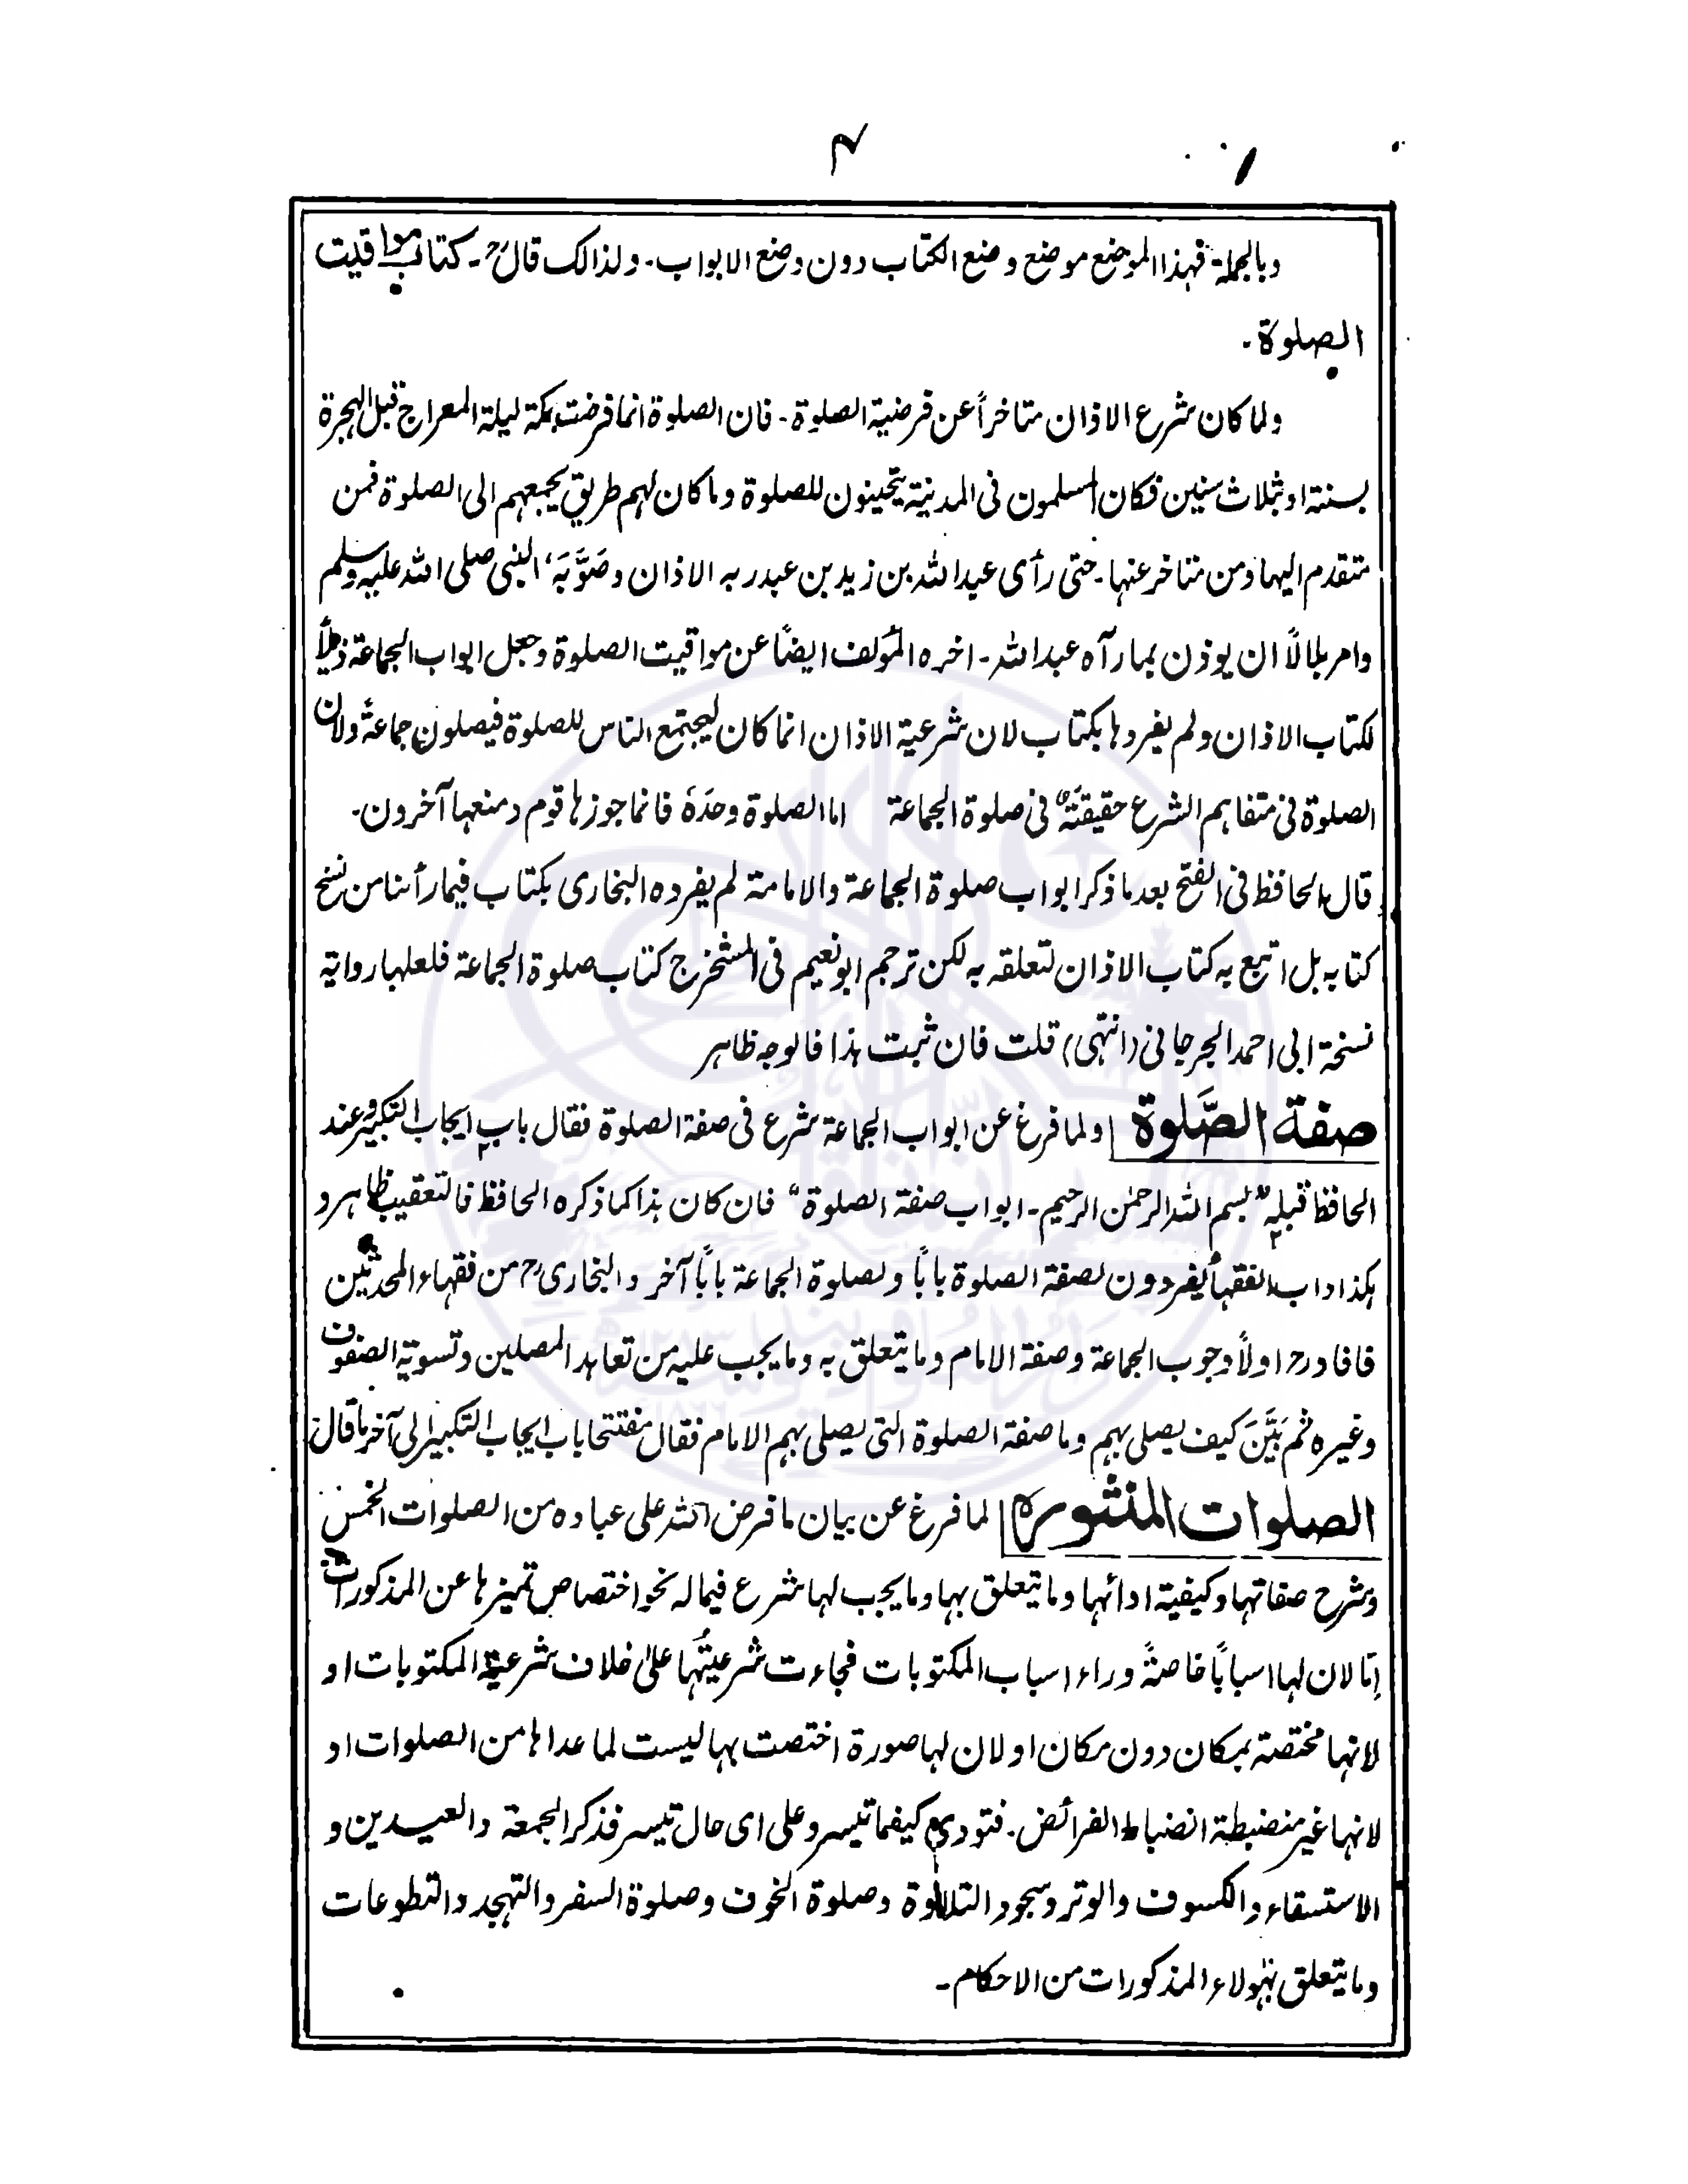 ۴
وبالجملة فهذا الموضع موضع وضع الکتاب دون وضع الابواب۔ ولذالک قالؒ۔ کتاب مواقیت
الصلوة۔
ولما کان شرع الاذان متاخراً عن فرضیة الصلوة۔ فان الصلوة انما فرضت بمکة لیلة المعراج قبل الهجرة
بسنة او ثلاث سنین فکان المسلمون فی المدینة یتحینون للصلوة وما کان لهم طریق یجمعهم الی الصلوة فمن
متقدم الیها ومن متاخر عنها۔ حتی رأی عبداللہ بن زید بن عبد ربه الاذان وصَوَّبَهٗ النبی صلی اللہ علیه وسلم
وامر بلالاً ان یوذن بما رآہ عبداللہ۔ اخره المؤلف ایضاً عن مواقیت الصلوة وجعل ابواب الجماعة ذیلاً
لکتاب الاذان ولم یفردها بکتاب لان شرعیة الاذان انما کان لیجتمع الناس للصلوة فیصلون جماعةً ولان
الصلوة فی متفاهم الشرع حقیقتهٗ فی صلوة الجماعة اما الصلوة وحدَهٗ فانما جوزها قوم ومنعها آخرون۔
قال الحافظ فی الفتح بعد ما ذکر ابواب صلوة الجماعة والامامة لم یفرده البخاری بکتاب فیما رأینا من نسخ
کتابه بل اتبع به کتاب الاذان لتعلقه به لکن ترجم ابونعیم فی المستخرج کتاب صلوة الجماعة فلعلها روایة
نسخة ابی احمد الجرجانی (انتهی) قلت فان ثبت هذا فالوجه ظاهر
صفة الصَّلوة ولما فرغ عن ابواب الجماعة شرع فی صفة الصلوة فقال باب ایجاب التکبیر وعند
الحافظ قبله "بسم اللہ الرحمٰن الرحیم۔ ابواب صفة الصلوة" فان کان هذا کما ذکره الحافظ فالتعقیب ظاهر و
هکذا داب الفقهاء یفردون لصفة الصلوة باباً ولصلوة الجماعة باباً آخر والبخاریؒ من فقهاء المحدثین
فافادؒ اولاً وجوب الجماعة وصفة الامام وما یتعلق به وما یجب علیه من تعاهد المصلین وتسویة الصفوف
وغیره ثم بَیَّنَ کیف یصلی بهم وما صفة الصلوة التی یصلی بهم الامام فقال مفتتحا باب ایجاب التکبیر الی آخر ما قال۔
الصلوات المنثورہ لما فرغ عن بیان ما فرض اللہ علی عباده من الصلوات الخمس
وشرح صفاتها وکیفیة ادائها وما یتعلق بها وما یجب لها شرع فیما له نحو اختصاص تمیزها عن المذکورات
اِمّا لان لها اسباباً خاصةً وراء اسباب المکتوبات فجاءت شرعیتُها علی خلاف شرعیة المکتوبات او
لانها مختصة بمکان دون مکان او لان لها صورة اختصت بها لیست لما عداها من الصلوات او
لانها غیر منضبطة انضباط الفرائض۔ فتودی کیفما تیسر وعلی ای حال تیسر فذکر الجمعة والعیدین و
الاستسقاء والکسوف والوتر وسجود التلاوة وصلوة الخوف وصلوة السفر والتهجد والتطوعات
وما یتعلق بهؤلاء المذکورات من الاحکام۔